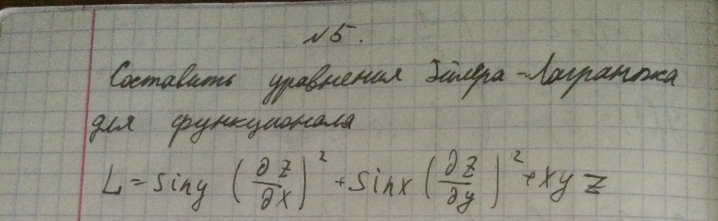 №5.
Составить уравнения Эйлера-Лагранжа
для функционала
L = sin y (∂z/∂x)² + sin x (∂z/∂y)² + xy z